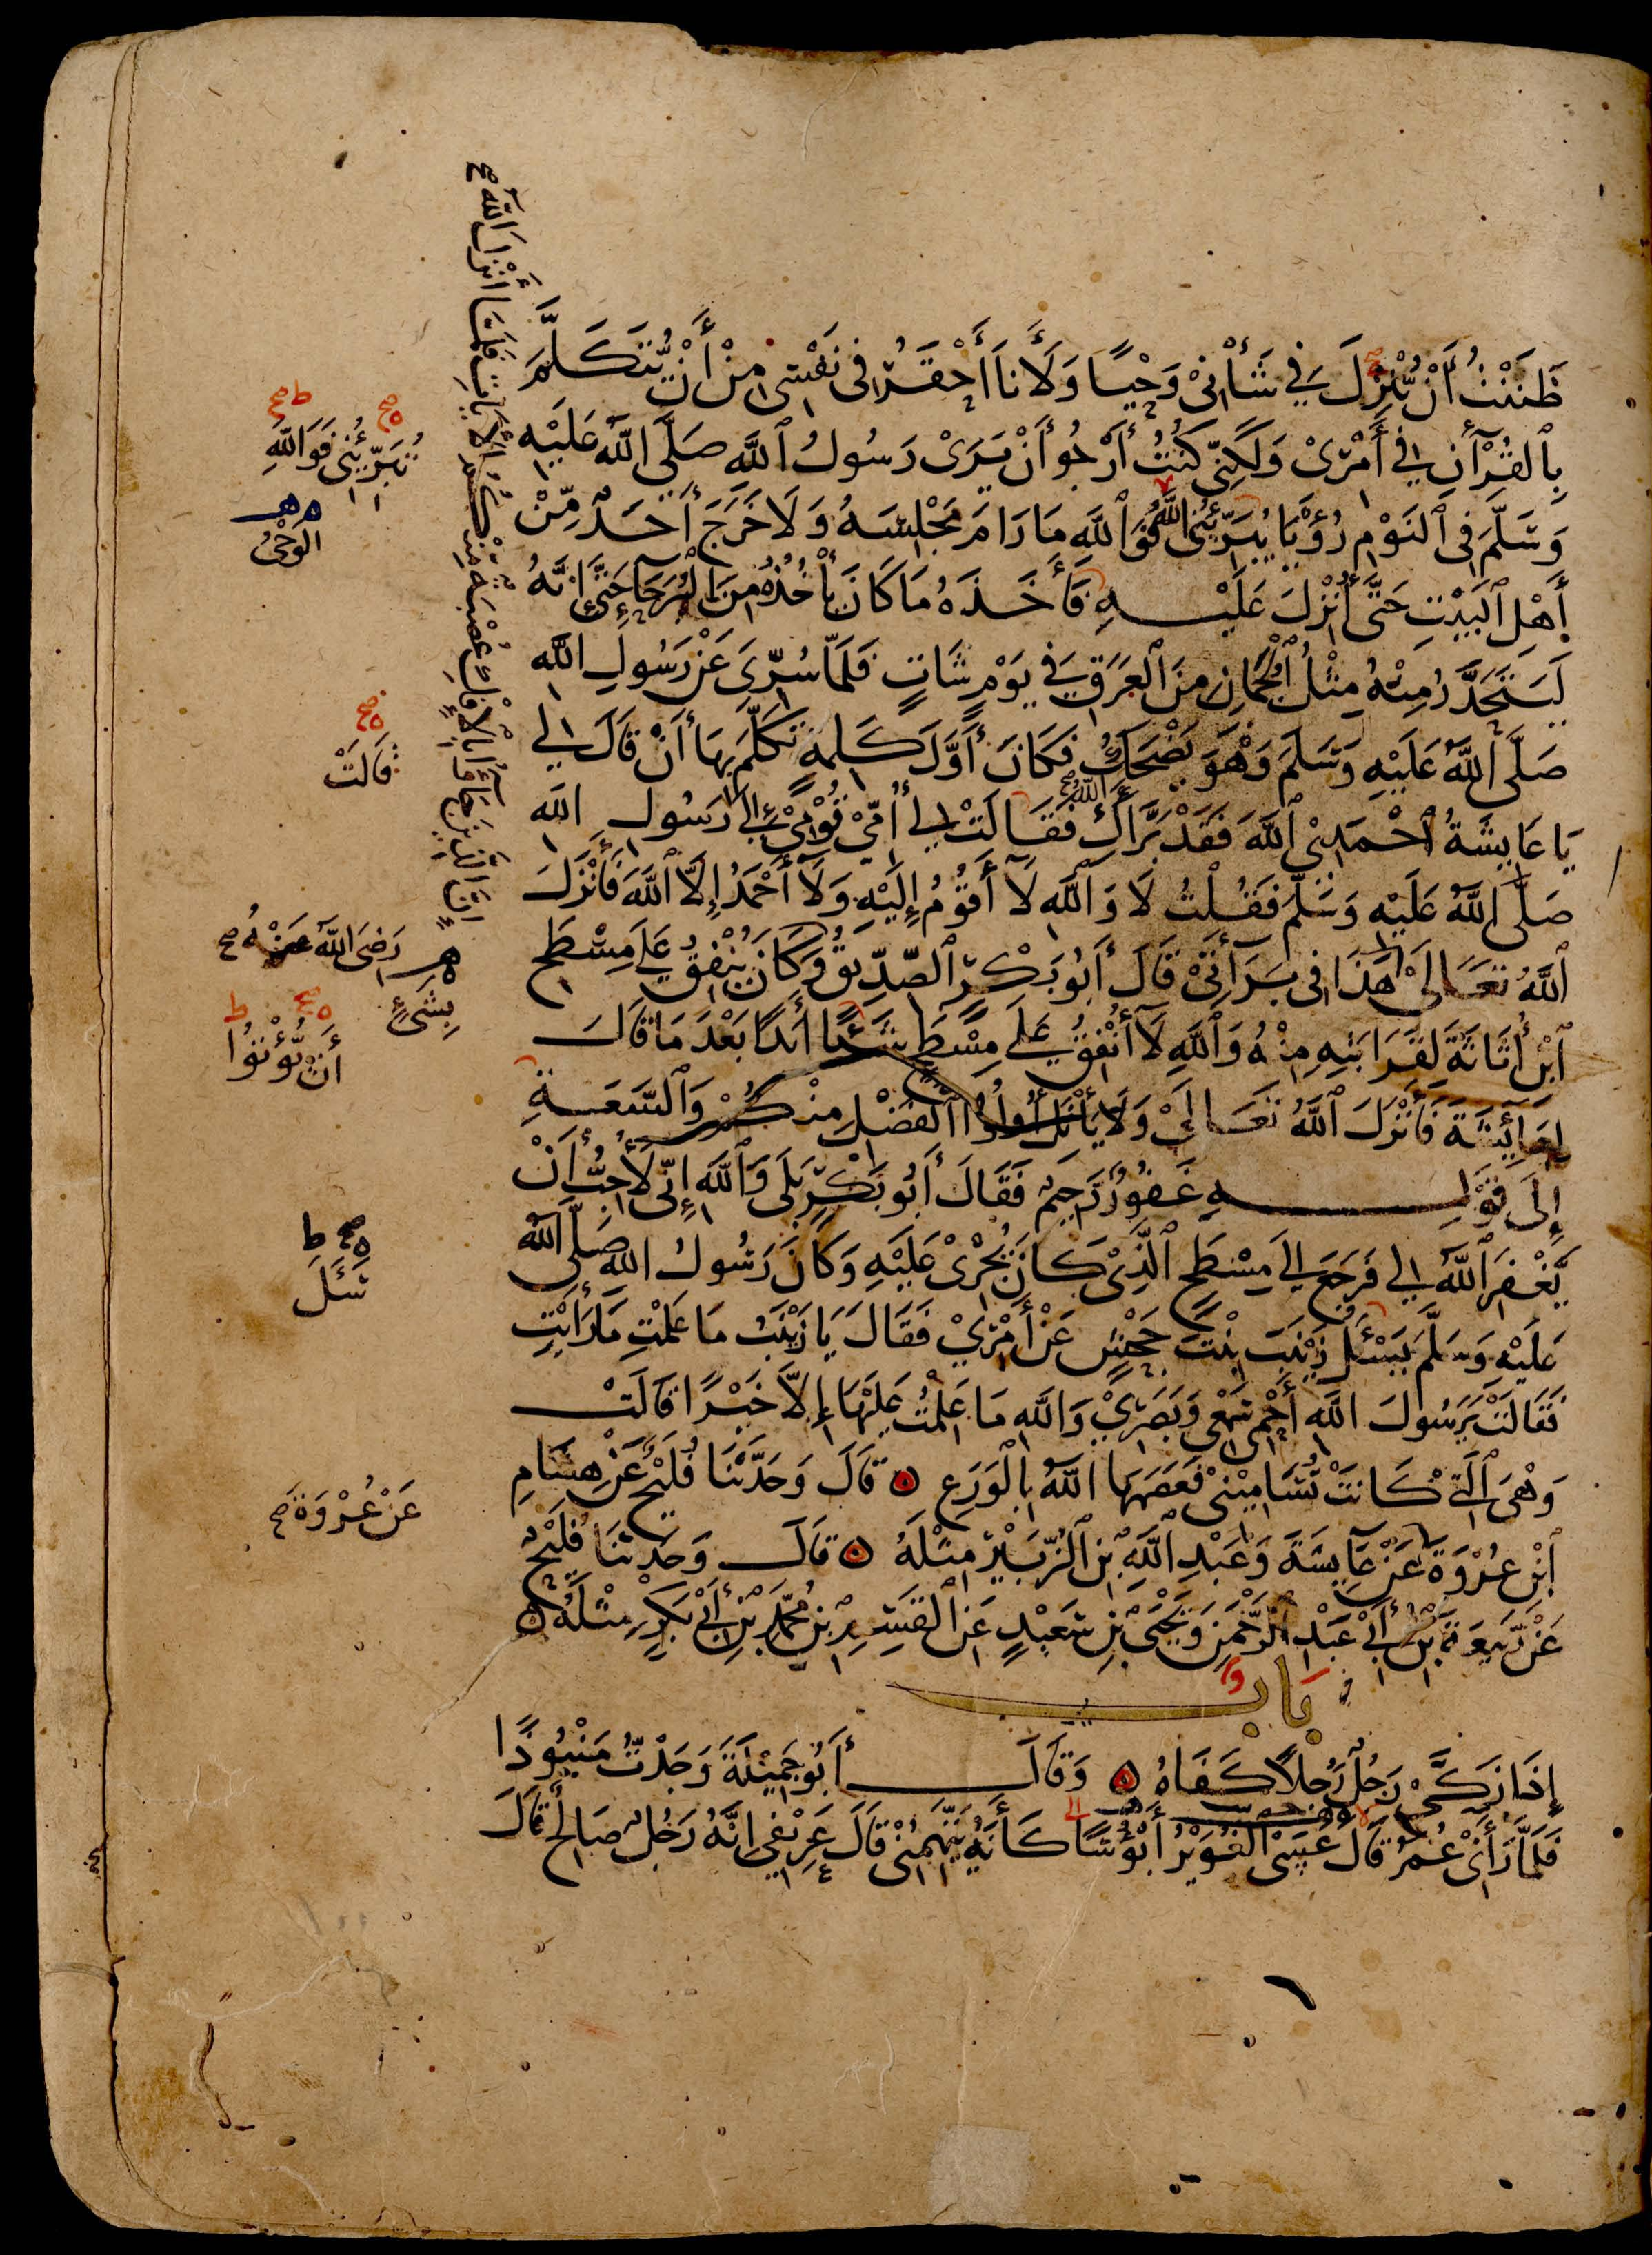 ظَنَنْتُ أَنْ يُنْزِلَ فِي شَأْنِي وَحْيًا وَلَأَنَا أَحْقَرُ فِي نَفْسِي مِنْ أَنْ يُتَكَلَّمَ
بِالقُرْآنِ فِي أَمْرِي وَلَكِنِّي كُنْتُ أَرْجُو أَنْ يَرَى رَسُولُ اللَّهِ صَلَّى اللَّهُ عَلَيْهِ
وَسَلَّمَ فِي النَّوْمِ رُؤْيَا يُبَرِّئُنِي اللَّهُ فَوَاللَّهِ مَا رَامَ مَجْلِسَهُ وَلَا خَرَجَ أَحَدٌ مِّنْ
أَهْلِ الْبَيْتِ حَتَّى أُنْزِلَ عَلَيْهِ فَأَخَذَهُ مَا كَانَ يَأْخُذُهُ مِنَ الْبُرَحَاءِ حَتَّى إِنَّهُ
لَيَتَحَدَّرُ مِنْهُ مِثْلُ الْجُمَانِ مِنَ الْعَرَقِ فِي يَوْمٍ شَاتٍ فَلَمَّا سُرِّيَ عَنْ رَسُولِ اللَّهِ
صَلَّى اللَّهُ عَلَيْهِ وَسَلَّمَ وَهْوَ يَضْحَكُ فَكَانَ أَوَّلَ كَلِمَةٍ تَكَلَّمَ بِهَا أَنْ قَالَ لِي
يَا عَايِشَةُ احْمَدِي اللَّهَ فَقَدْ بَرَّأَكِ اللَّهُ فَقَالَتْ لِي أُمِّي قُوْمِي إِلَى رَسُولِ اللَّهِ
صَلَّى اللَّهُ عَلَيْهِ وَسَلَّمَ فَقُلْتُ لَا وَاللَّهِ لَا أَقُوْمُ إِلَيْهِ وَلَا أَحْمَدُ إِلَّا اللَّهَ فَأَنْزَلَ
اللَّهُ تَعَالَى هَذَا فِي بَرَاءَتِي قَالَ أَبُو بَكْرٍ الصِّدِّيقُ وَكَانَ يُنْفِقُ عَلَى مِسْطَحِ
ابْنِ أُثَاثَةَ لِقَرَابَتِهِ مِنْهُ وَاللَّهِ لَا أُنْفِقُ عَلَى مِسْطَحٍ شَيْئًا أَبَدًا بَعْدَ مَا قَالَ
لِعَائِشَةَ فَأَنْزَلَ اللَّهُ تَعَالَى وَلَا يَأْتَلِ أُولُوا الْفَضْلِ مِنْكُمْ وَالسَّعَةِ
إِلَى قَوْلِهِ غَفُورٌ رَحِيمٌ فَقَالَ أَبُو بَكْرٍ بَلَى وَاللَّهِ إِنِّي لَأُحِبُّ أَنْ
يَغْفِرَ اللَّهُ لِي فَرَجَعَ إِلَى مِسْطَحٍ الَّذِي كَانَ يُجْرِي عَلَيْهِ وَكَانَ رَسُولُ اللَّهِ صَلَّى اللَّهُ
عَلَيْهِ وَسَلَّمَ يَسْئَلُ زَيْنَبَ بِنْتَ جَحْشٍ عَنْ أَمْرِي فَقَالَ يَا زَيْنَبُ مَا عَلِمْتِ مَا رَأَيْتِ
فَقَالَتْ يَرَسُولَ اللَّهِ أَحْمِي سَمْعِي وَبَصَرِي وَاللَّهِ مَا عَلِمْتُ عَلَيْهَا إِلَّا خَيْرًا قَالَتْ
وَهْيَ الَّتِي كَانَتْ تُسَامِيْنِي فَعَصَمَهَا اللَّهُ بِالْوَرَعِ ۞ قَالَ وَحَدَّثَنَا فُلَيْحٌ عَنْ هِشَامِ
ابْنِ عُرْوَةَ عَنْ عَايِشَةَ وَعَبْدِ اللَّهِ بْنِ الزُّبَيْرِ مِثْلَهُ ۞ قَالَ وَحَدَّثَنَا فُلَيْحٌ
عَنْ رَبِيعَةَ بْنِ أَبِي عَبْدِ الرَّحْمَنِ وَيَحْيَى بْنِ سَعِيدٍ عَنِ الْقَسِمِ بْنِ مُحَمَّدِ بْنِ أَبِي بَكْرٍ مِثْلَهُ ۞
بَابٌ
إِذَا زَكَّى رَجُلٌ رَجُلًا كَفَاهُ ۞ وَقَالَ أَبُو جَمِيْلَةَ وَجَدْتُ مَنْبُوذًا
فَلَمَّا رَأَنِي عُمَرُ قَالَ عَسَى الْغُوَيْرُ أَبْؤُسًا كَأَنَّهُ يَتَّهِمُنِي قَالَ عَرِيْفِي إِنَّهُ رَجُلٌ صَالِحٌ قَالَ
إِنَّ الَّذِينَ جَاءُوا بِالْإِفْكِ عُصْبَةٌ مِنْكُمْ الآيَاتِ فَلَمَّا أَنْزَلَ اللَّهُ صح
تُبَرِّئُنِي فَوَاللَّهِ
الوَحْيُ
قَالَتْ
رَضِيَ اللَّهُ عَنْهُ صح
بِشَيْءٍ
أَنْ يُؤْتُوا
سَئَلَ
عَنْ عُرْوَةَ صح